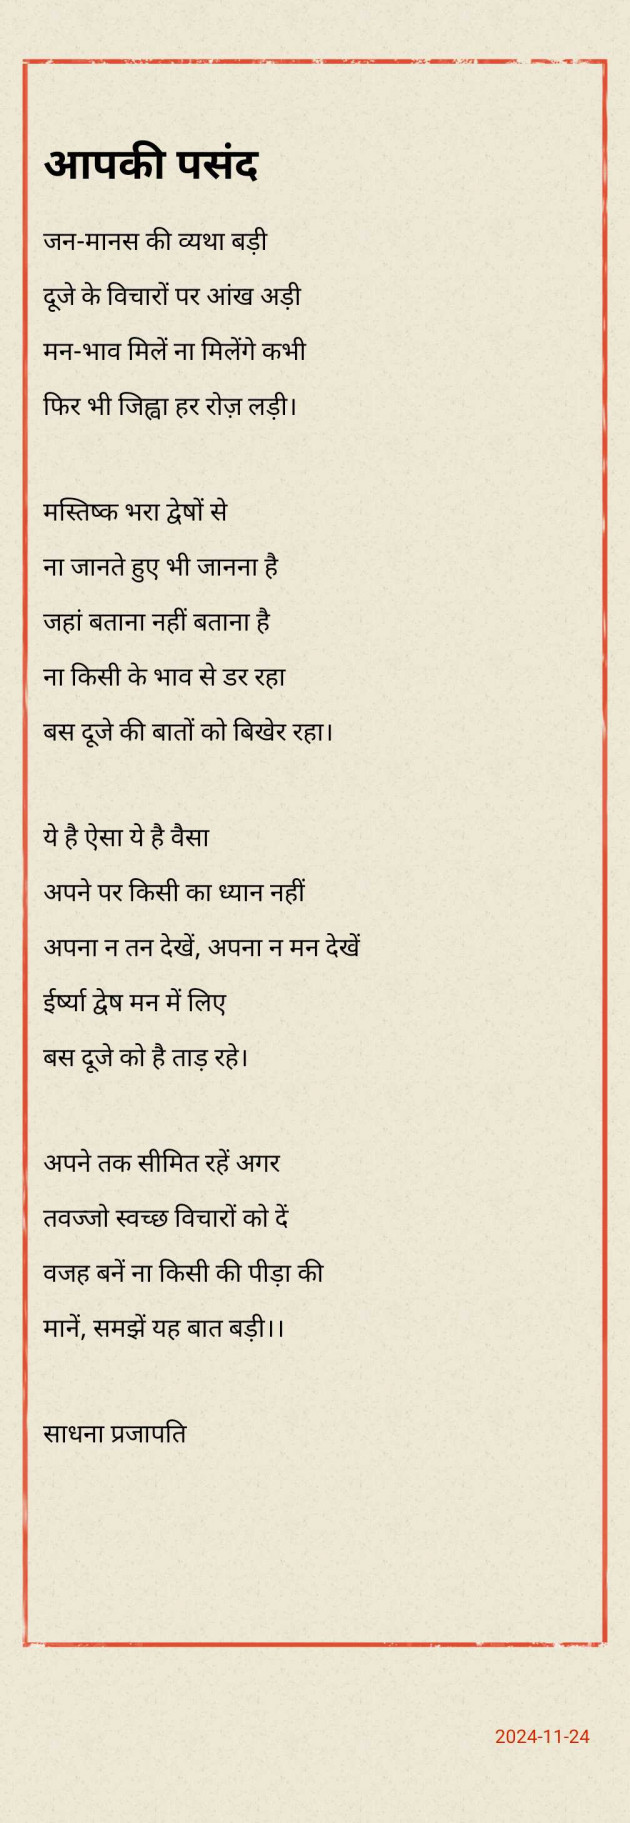 आपकी पसंद
जन-मानस की व्यथा बड़ी
दूजे के विचारों पर आंख अड़ी
मन-भाव मिलें ना मिलेंगे कभी
फिर भी जिह्वा हर रोज़ लड़ी।
मस्तिष्क भरा द्वेषों से
ना जानते हुए भी जानना है
जहां बताना नहीं बताना है
ना किसी के भाव से डर रहा
बस दूजे की बातों को बिखेर रहा।
ये है ऐसा ये है वैसा
अपने पर किसी का ध्यान नहीं
अपना न तन देखें, अपना न मन देखें
ईर्ष्या द्वेष मन में लिए
बस दूजे को है ताड़ रहे।
अपने तक सीमित रहें अगर
तवज्जो स्वच्छ विचारों को दें
वजह बनें ना किसी की पीड़ा की
मानें, समझें यह बात बड़ी।।
साधना प्रजापति
2024-11-24